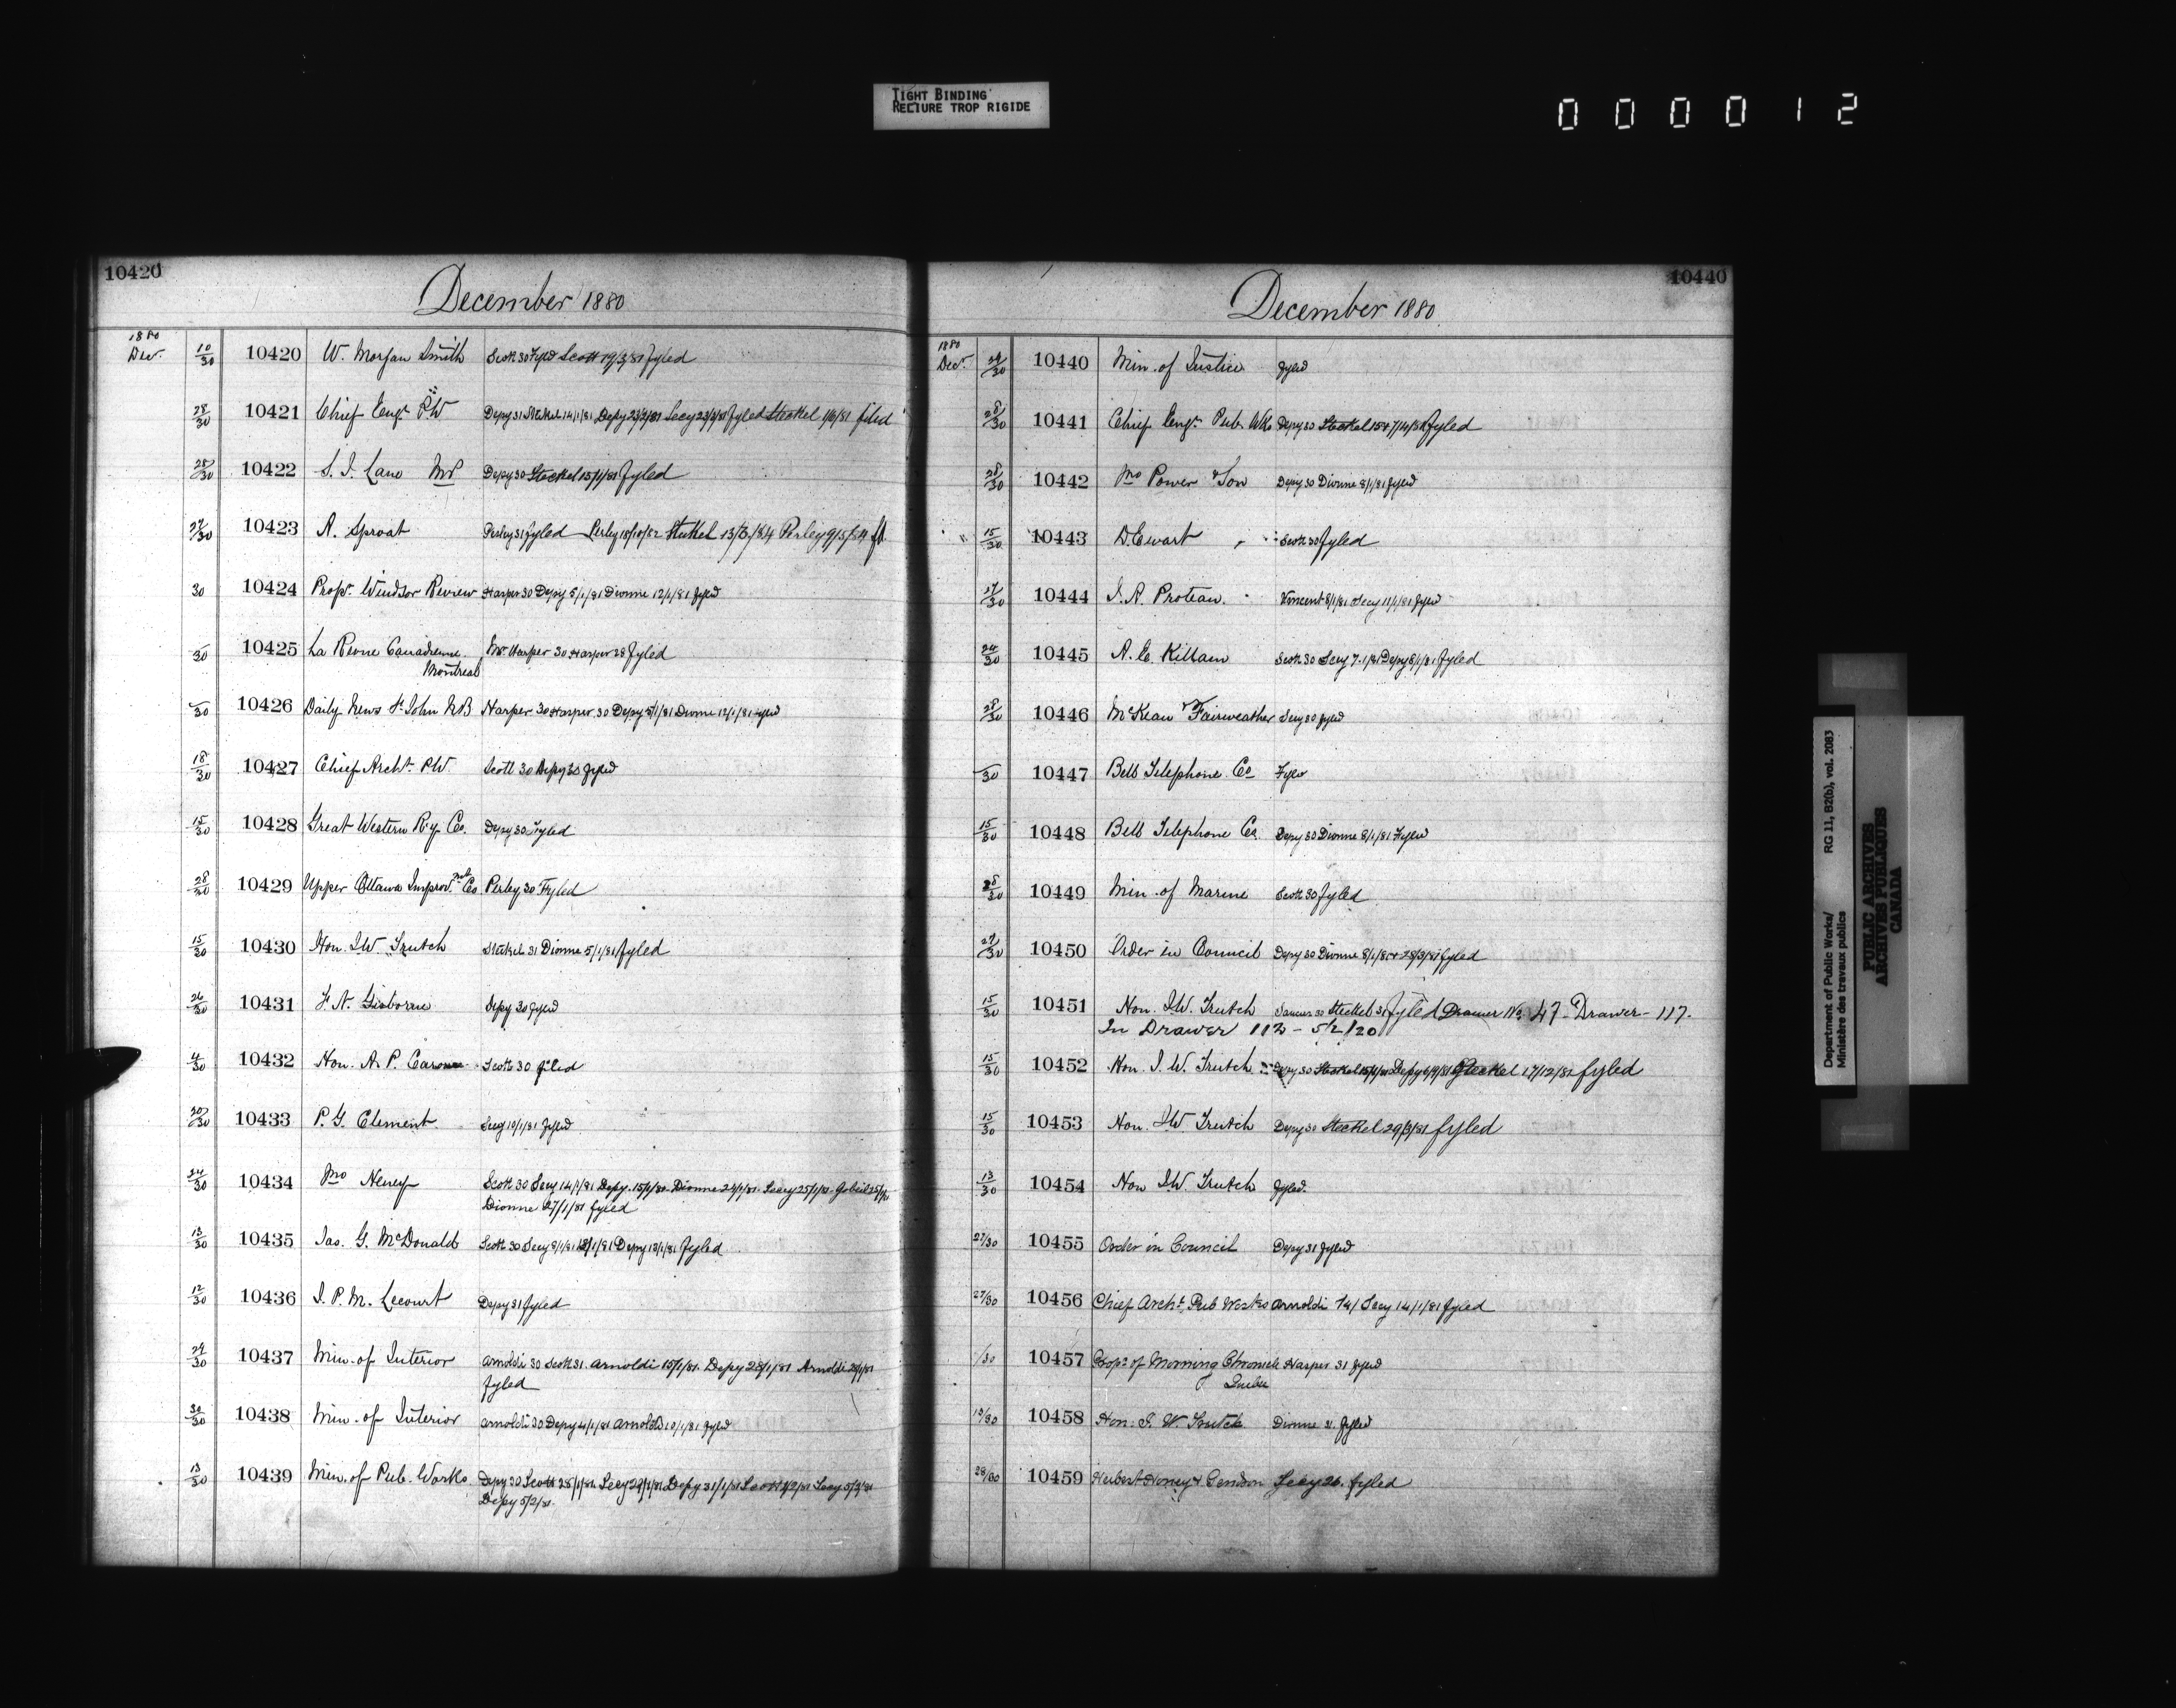 TIGHT BINDING
RELIURE TROP RIGIDE
000012
10420
December 1880
1880
Dec. 10/30 10420 W. Morgan Smith Scott 30 Fyled Scott 19/3/81 fyled
28/30 10421 Chief Engr P.W Depy 31 Stekel 14/1/81 Depy 23/2/81 Secy 23/2/81 fyled Steckel 1/6/81 filed
28/30 10422 S. J. Lane MP Depy 30 Steckel 15/1/81 fyled
27/30 10423 A. Sproat Perley 31 fyled Perley 18/10/82 Stekel 13/3/84 Perley 9/5/84 fd.
30 10424 Propr. Windsor Review Harper 30 Depy 5/1/81 Dionne 12/1/81 fyled
30 10425 La Revue Canadienne Mr Harper 30 Harper 28 fyled
Montreal
30 10426 Daily News St John NB Harper 30 Harper 30 Depy 5/1/81 Dionne 12/1/81 fyled
18/30 10427 Chief Archt. P.W. Scott 30 Depy 30 fyled
15/30 10428 Great Western Ry Co. Depy 30 Fyled
28/30 10429 Upper Ottawa Improvmt Co Perley 30 Fyled
15/30 10430 Hon. J.W. Trutch Stekel 31 Dionne 5/1/81 fyled
26/30 10431 F. N. Gisborne Depy 30 fyled
4/30 10432 Hon. A. P. Caron Scott 30 filed
20/30 10433 P. G. Clement Secy 10/1/81 fyled
24/30 10434 Mrs Neney Scott 30 Secy 14/1/81 Depy. 15/1/81. Dionne 24/1/81. Secy 25/1/81. Gobeil
Dionne 27/1/81 fyled
13/30 10435 Jas. G. McDonald Scott 30 Secy 8/1/81 Depy 13/1/81 fyled
12/30 10436 J. P. M. Lecourt Depy 31 fyled
29/30 10437 Min. of Interior Arnoldi 30 Scott 31. Arnoldi 15/1/81. Depy 28/1/81 Arnoldi 28/1/81
fyled
30/30 10438 Min. of Interior Arnoldi 30 Depy 4/1/81 Arnoldi 10/1/81 fyled
13/30 10439 Min. of Pub. Works Depy 30 Scott 28/1/81 Secy 29/1/81 Depy 31/1/81 Scott 1/2/81 Secy 5/2/81
Depy 5/2/81
10440
December 1880
1880
Decr. 29/30 10440 Min. of Justice fyled
28/30 10441 Chief Engr. Pub. Wks Depy 30 Steckel fyled
28/30 10442 Mrs Power & Son Depy 30 Dionne 8/1/81 fyled
" 15/30 10443 D. Ewart Scott 30 fyled
17/30 10444 J. A. Proteau. Vincent 8/1/81 Secy 11/1/81 fyled
24/30 10445 A. E. Killam Scott 30 Secy 7.1/81 Depy 8/1/81 fyled
28/30 10446 McKean & Fairweather Secy 30 fyled
30 10447 Bell Telephone Co Fyled
15/30 10448 Bell Telephone Co. Depy 30 Dionne 8/1/81 Fyled
28/30 10449 Min. of Marine Scott 30 fyled
27/30 10450 Order in Council Depy 30 Dionne 8/1/81 28/3/81 fyled
15/30 10451 Hon. J.W. Trutch Steckel 31 fyled Drawer No. 47 - Drawer - 117.
In Drawer 112 - 5/2/20
15/30 10452 Hon. J. W. Trutch Depy 30 Steckel Depy Steckel 17/12/81 fyled
15/30 10453 Hon. J.W. Trutch Depy 30 Steckel 29/3/81 fyled
13/30 10454 Hon J.W. Trutch fyled.
27/30 10455 Order in Council Depy 31 fyled
27/30 10456 Chief Archt. Pub Works Arnoldi Secy 14/1/81 fyled
/30 10457 Propr of Morning Chronicle Harper 31 fyled
Quebec
13/30 10458 Hon. J. W. Trutch Dionne 31. fyled
28/30 10459 Herbert Honey & Gendron Secy 26. fyled
Department of Public Works/ RG 11, B2(b), vol. 2083
Ministère des travaux publics
PUBLIC ARCHIVES
ARCHIVES PUBLIQUES
CANADA